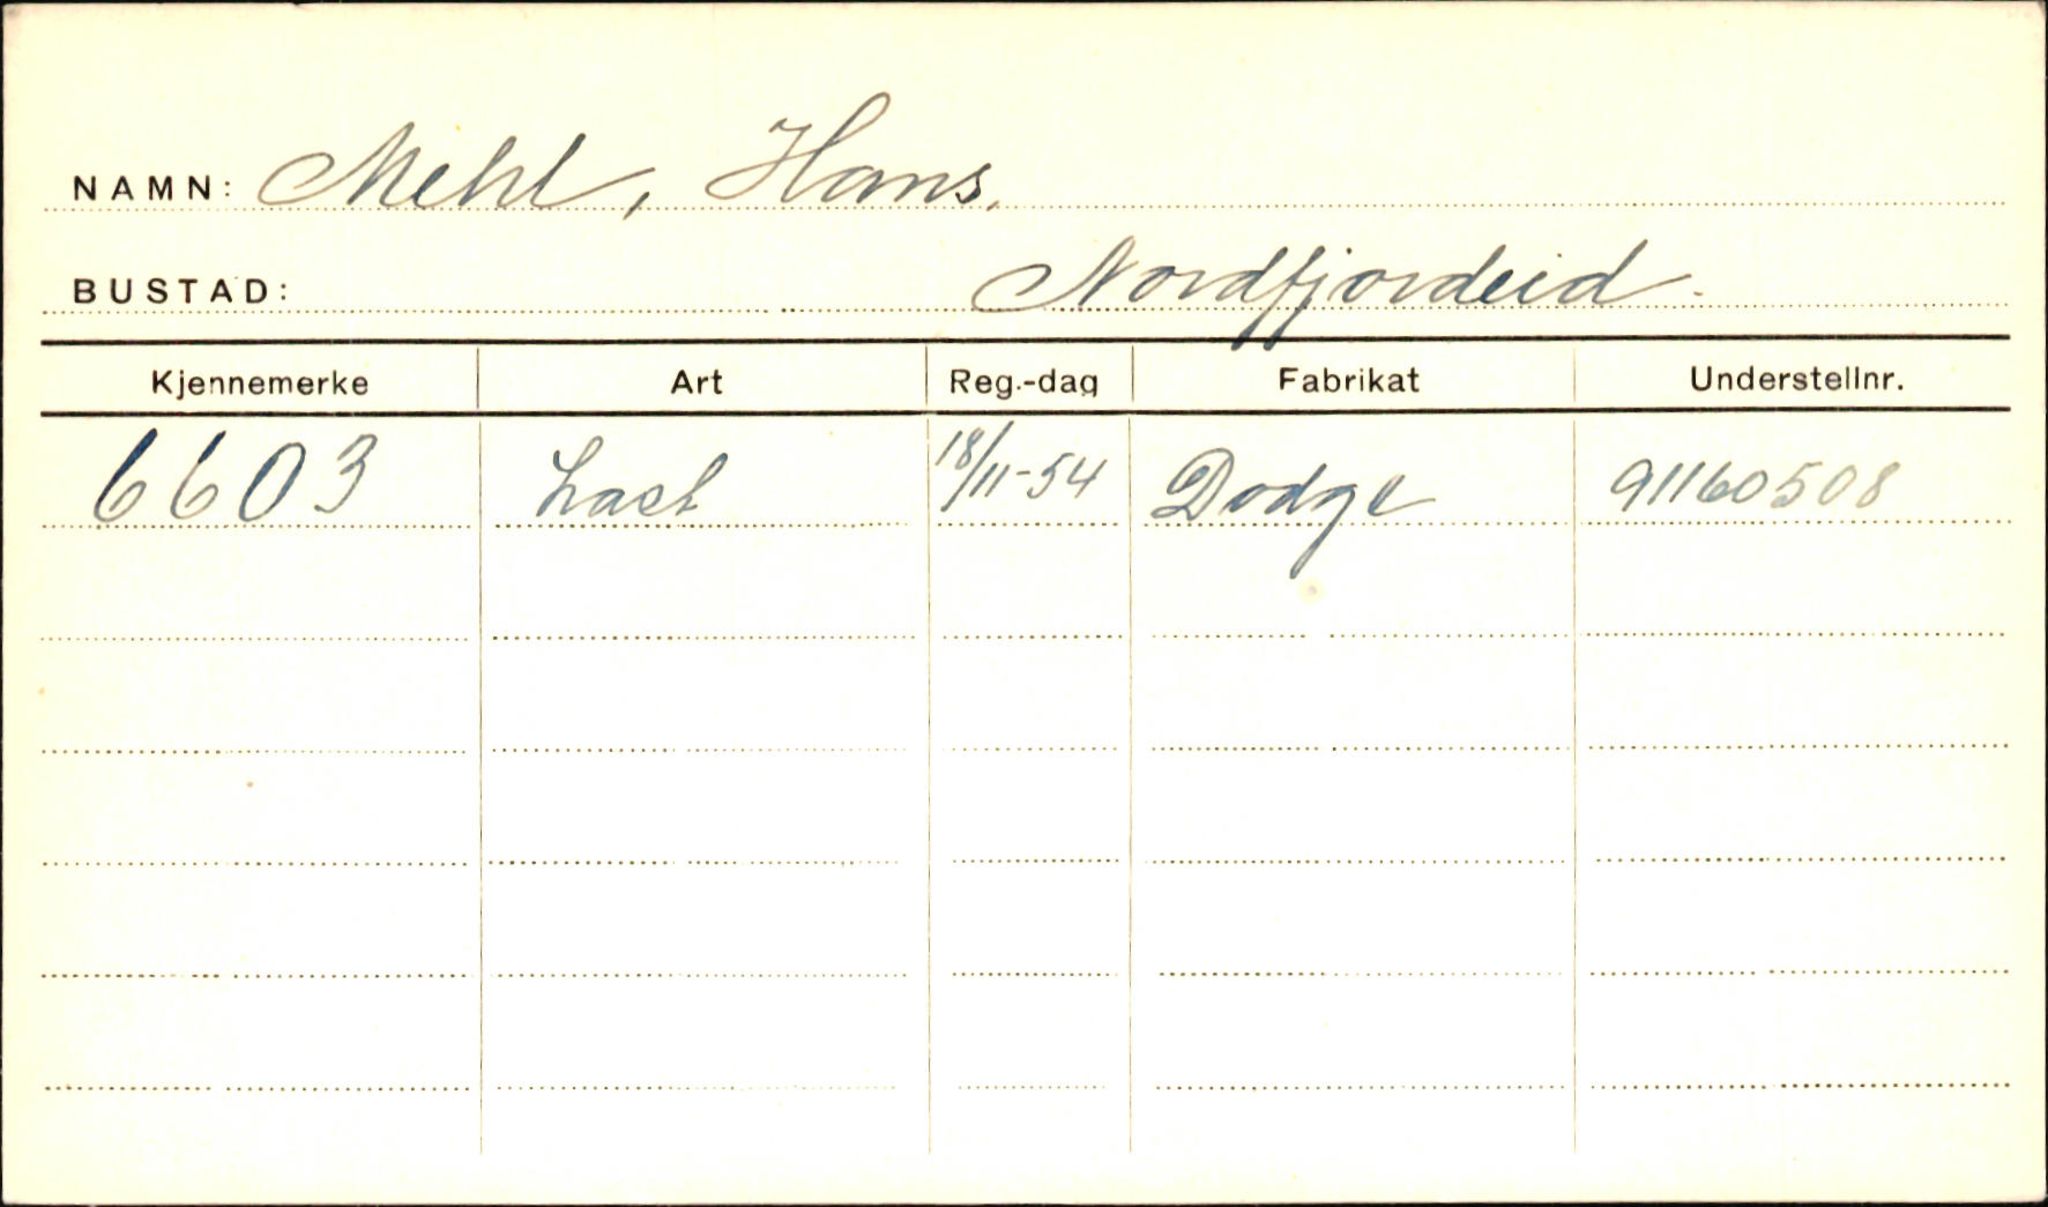 NAMN: Mehl, Hans.
BUSTAD: Nordfjordeid.
Kjennemerke Art Reg.-dag Fabrikat Understellnr.
6603 Last 18/11-54 Dodge 91160508